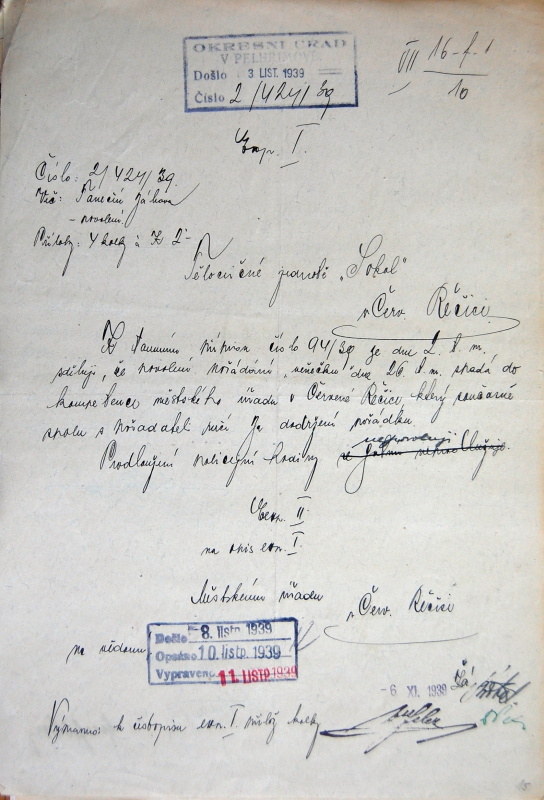 OKRESNÍ ÚŘAD
V PELHŘIMOVĚ
Došlo 3 LIST. 1939
Číslo 2/424/39
VII 16-f-1
10
Exp. I.
Číslo: 2/424/39.
Věc: Taneční zábava
- povolení.
Přílohy: 4 kolky à K 2·-
Tělocvičné jednotě „Sokol“
v Červ. Řečici.
K tamnímu přípisu číslo 94/39 ze dne 2. t. m.
sděluji, že povolení pořádání „věnečku“ dne 26. t. m. spadá do
kompetence městského úřadu v Červené Řečici, který současně
spolu s pořadateli ručí za dodržení pořádku.
Prodloužení policejní hodiny nepovoluji
Exp. II
na opis exp. I.
Městskému úřadu
v Červ. Řečici
na vědomí
Došlo 8. listp. 1939
Opsáno 10. listp. 1939
Vypraveno 11. LISTP. 1939
- 6 XI. 1939
Výpravno: k čistopisu exp. I. přilož kolky
15